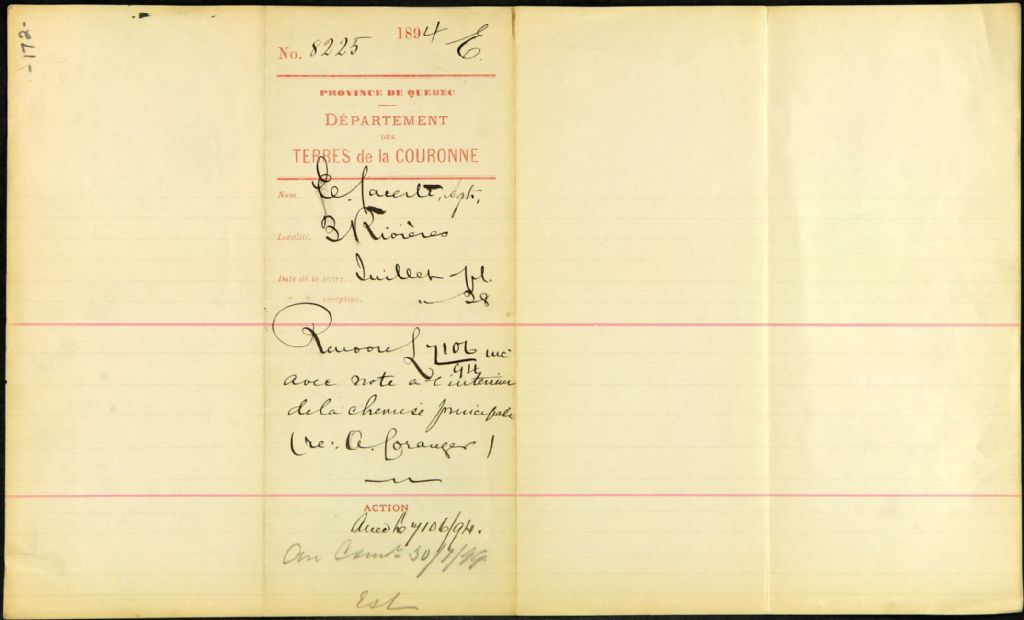 -172-
1894 E.
No. 8225
PROVINCE DE QUEBEC
DÉPARTEMENT
DES
TERRES de la COURONNE
Nom. agt,
Localité. 3 Rivières
Date de la lettre. Juillet
" " réception. " 28
Renvoie L 7106/94 inc
avec note a l'interieur
de la chemise principale
(re: A. Loranger)
ACTION
Avec L 7106/94.
30/7/94
Est